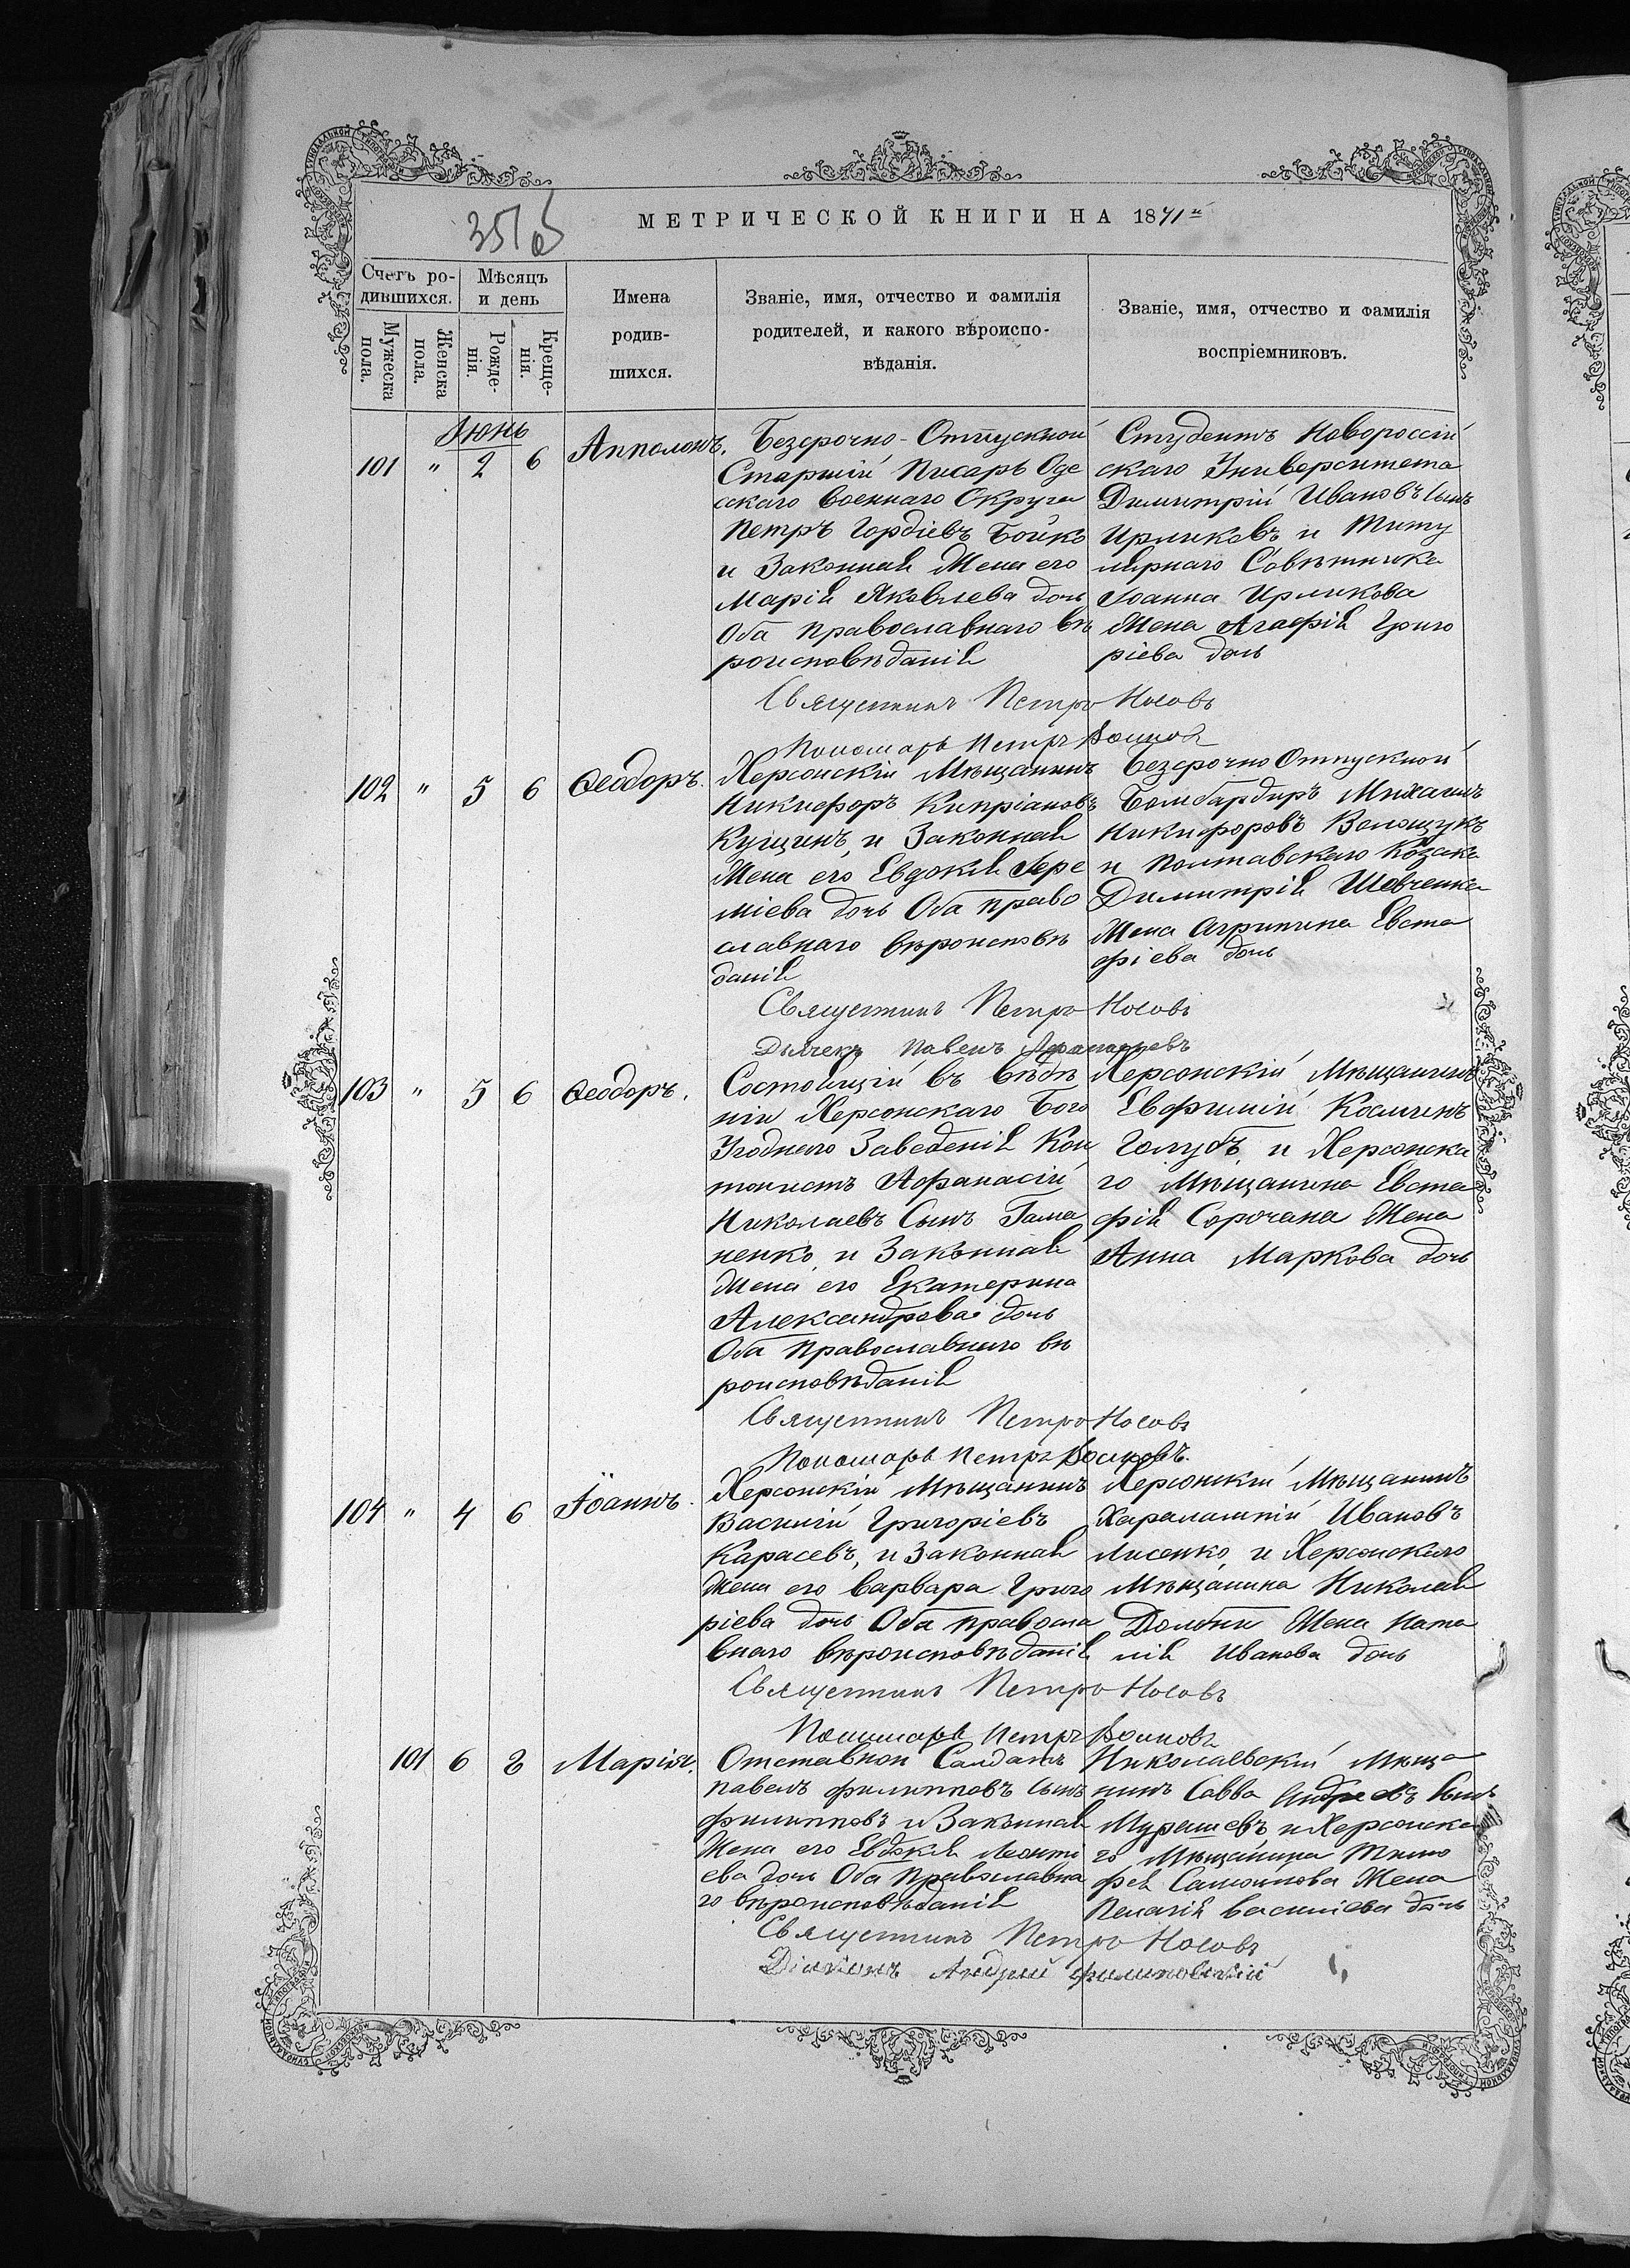 МЕТРИЧЕСКОЙ КНИГИ НА 1871й
Счетъ ро-
дившихся.
Мѣсяцъ
и день
Мужеска
пола.
Женска
пола.
Рожде-
нія.
Креще-
нія.
Имена
родив-
шихся.
Званіе, имя, отчество и фамилія
родителей, и какого вѣроиспо-
вѣданія.
Званіе, имя, отчество и фамилія
воспріемниковъ.
Июнь
101 " 2 6 Апполонъ.
Безсрочно-Отпускной
Старшій Писарь Оде
скаго Военнаго Округа
Петръ Гордіевъ Бойко
и Законная Жена его
Марія Яковлева дочь
Оба православнаго вѣ
роисповѣданія
Студентъ Новороссій
скаго Университета
Димитрій Ивановъ Сынъ
Ирликовъ и Титу
лярнаго Совѣтника
Іоанна Ирликова
Жена Агафія Григо
ріева дочь
Священникъ Петръ Носовъ
Пономарь Петръ
102 " 5 6 Ѳеодоръ.
Херсонскій Мѣщанинъ
Никифоръ Кипріановъ
Кущинъ, и Законная
Жена его Евдокія Іере
міева дочь Оба право
славнаго вѣроисповѣ
данія
Безсрочно Отпускной
Бомбардиръ Михаилъ
Никифоровъ Волощукъ
и Полтавскаго Козака
Димитрія Шевченка
Жена Агрипина Евста
фіева дочь
Священникъ Петръ Носовъ
Дьячекъ Павелъ
103 " 5 6 Ѳеодоръ.
Состоящій въ вѣдѣ
ніи Херсонскаго Бого
Угоднаго Заведенія Кан
тонистъ Афанасій
Николаевъ Сынъ Гама
ненко, и Законная
Жена его Екатерина
Александрова дочь
Оба Православнаго вѣ
роисповѣданія
Херсонскій Мѣщанинъ
Евфимій Косминъ
Голубъ, и Херсонска
го Мѣщанина Евста
фія Сорочана Жена
Анна Маркова дочь
Священникъ Петръ Носовъ
Пономарь Петръ
104 " 4 6 Іоаннъ.
Херсонскій Мѣщанинъ
Василій Григоріевъ
Карасевъ, и Законная
Жена его Варвара Григо
ріева дочь Оба правосла
внаго вѣроисповѣданія
Херсонскій Мѣщанинъ
Харалампій Ивановъ
Лисенко, и Херсонскаго
Мѣщанина Николая
Долбни Жена Ната
лія Иванова дочь
Священникъ Петръ Носовъ
Пономарь Петръ
101 6 8 Марія.
Отставной Салдатъ
Павелъ Филипповъ Сынъ
Филипповъ и Законная
Жена его Евдокія Леонти
ева дочь Оба Православна
го вѣроисповѣданія
Николаевскій Мѣща
нинъ Савва Андреевъ Сынъ
и Херсонска
го Мѣщанина Тимо
фея Жена
Пелагія Василіева дочь
Священникъ Петръ Носовъ
Діаконъ Андрей Филиповскій